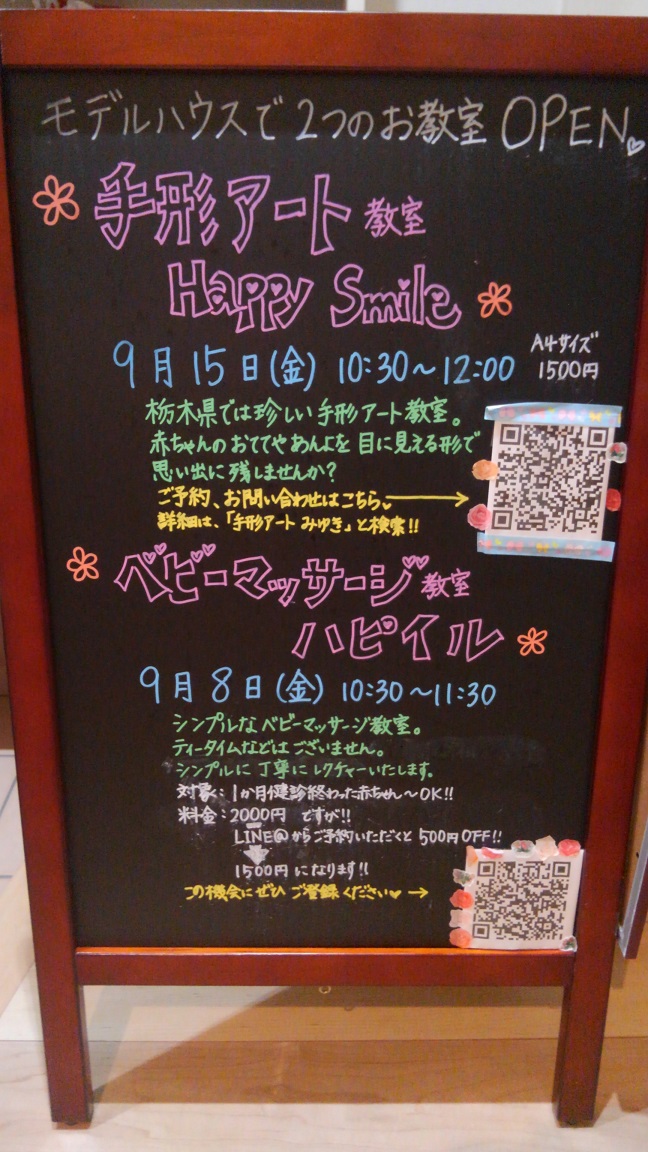 モデルハウスで2つのお教室OPEN♡
手形アート教室
Happy Smile
9月15日(金) 10:30〜12:00
A4サイズ
1500円
栃木県では珍しい手形アート教室。
赤ちゃんのおててやあんよを目に見える形で
思い出に残しませんか?
ご予約、お問い合わせはこちら♡→
詳細は、「手形アート みゆき」と検索!!
ベビーマッサージ教室
ハピイル
9月8日(金) 10:30〜11:30
シンプルなベビーマッサージ教室。
ティータイムなどはございません。
シンプルに丁寧にレクチャーいたします。
対象:1か月健診終わった赤ちゃん〜OK!!
料金:2000円 ですが!!
LINE@からご予約いただくと 500円OFF!!
1500円になります!!
この機会にぜひご登録ください♡→